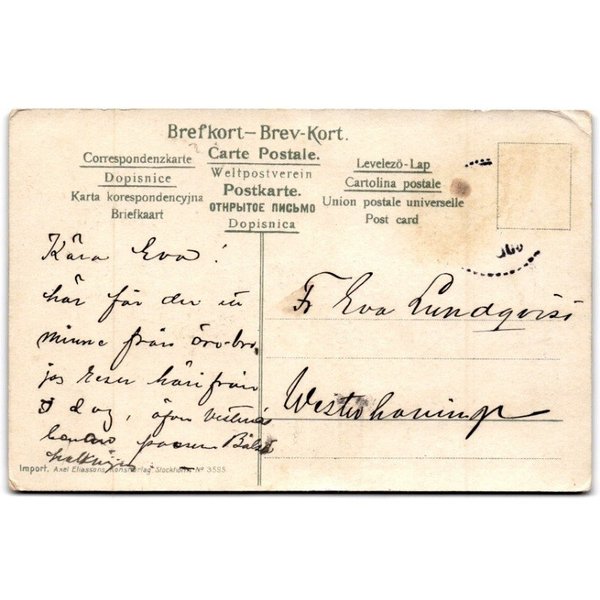 Brefkort–Brev-Kort.
Carte Postale.
Correspondenzkarte
Weltpostverein
Levelező-Lap
Dopisnice
Postkarte.
Cartolina postale
Karta korespondencyjna
ОТКРЫТОЕ ПИСЬМО
Union postale universelle
Briefkaart
Dopisnica
Post card
Kära Eva!
här får du ett
minne från örebro,
jag reser härifrån
i dag,
Fr Eva Lundqvist
Westerhaninge
Import. Axel Eliassons Konstförlag Stockholm Nº 3595